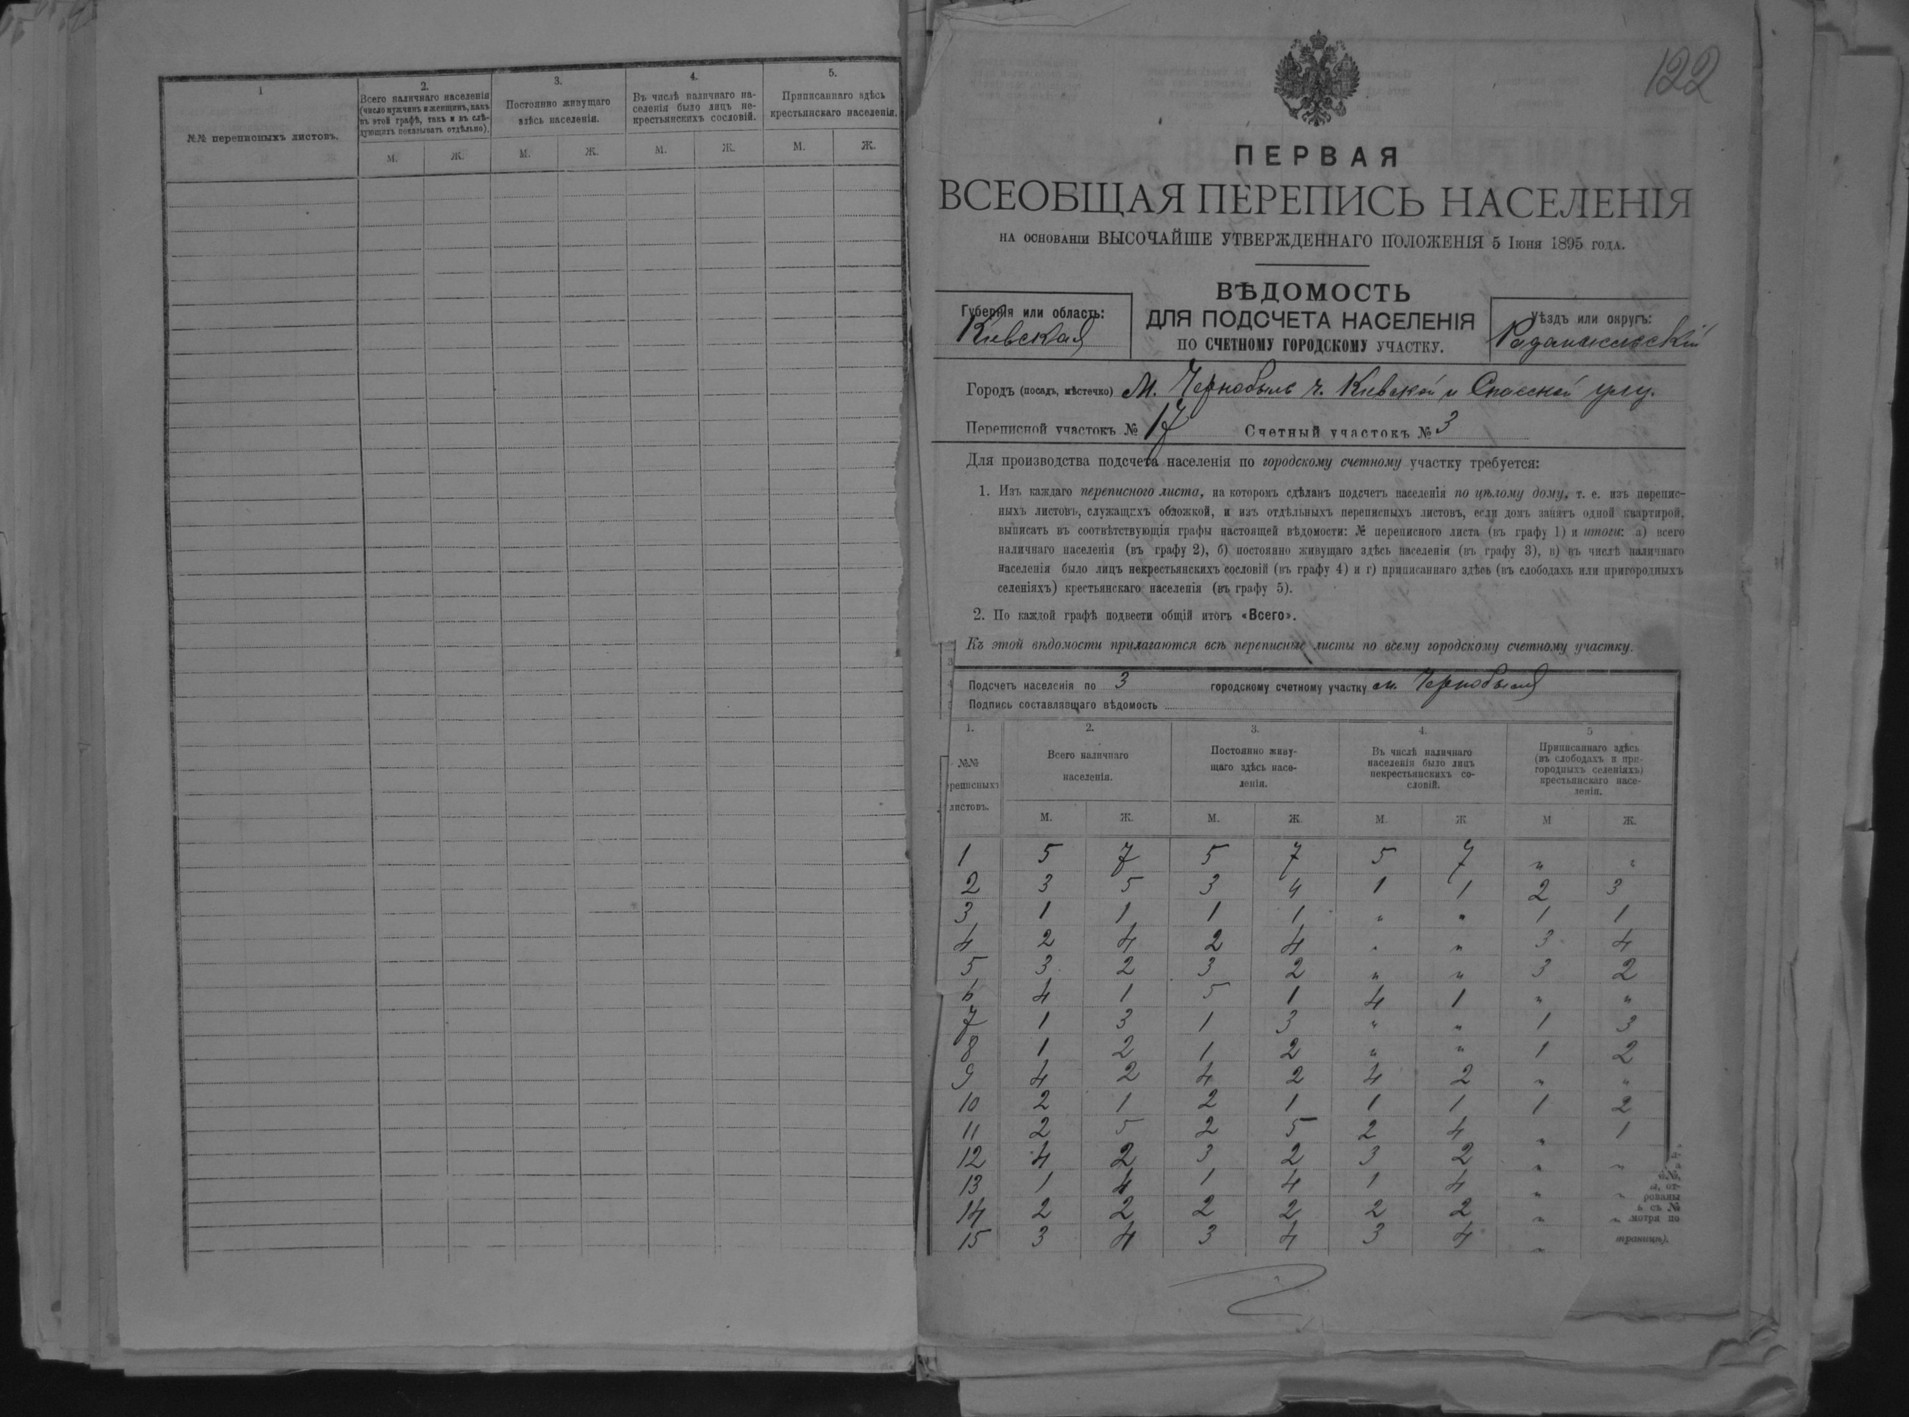 1
№№ переписныхъ листовъ.
2.
Всего наличнаго населенія
(число мужчинъ и женщинъ, какъ
въ этой графѣ, такъ и въ слѣ-
дующихъ показывать отдѣльно).
3.
Постоянно живущаго
здѣсь населенія.
4.
Въ числѣ наличнаго на-
селенія было лицъ не-
крестьянскихъ сословій.
5.
Приписаннаго здѣсь
крестьянскаго населенія.
М. Ж. М. Ж. М. Ж. М. Ж.
122
ПЕРВАЯ
ВСЕОБЩАЯ ПЕРЕПИСЬ НАСЕЛЕНІЯ
НА ОСНОВАНІИ ВЫСОЧАЙШЕ УТВЕРЖДЕННАГО ПОЛОЖЕНІЯ 5 Іюня 1895 года.
ВѢДОМОСТЬ
ДЛЯ ПОДСЧЕТА НАСЕЛЕНІЯ
ПО СЧЕТНОМУ ГОРОДСКОМУ УЧАСТКУ.
Губернія или область:
Кіевская
Уѣздъ или округъ:
Городъ (посадъ, мѣстечко) М. Чернобыль ч. Кіевской и Спасской улиц.
Переписной участокъ № 17 Счетный участокъ № 3
Для производства подсчета населенія по городскому счетному участку требуется:
1. Изъ каждаго переписного листа, на которомъ сдѣланъ подсчетъ населенія по цѣлому дому, т. е. изъ перепис-
ныхъ листовъ, служащихъ обложкой, и изъ отдѣльныхъ переписныхъ листовъ, если домъ занятъ одной квартирой,
выписать въ соотвѣтствующія графы настоящей вѣдомости: № переписного листа (въ графу 1) и итоги: а) всего
наличнаго населенія (въ графу 2), б) постоянно живущаго здѣсь населенія (въ графу 3), в) въ числѣ наличнаго
населенія было лицъ некрестьянскихъ сословій (въ графу 4) и г) приписаннаго здѣсь (въ слободахъ или пригородныхъ
селеніяхъ) крестьянскаго населенія (въ графу 5).
2. По каждой графѣ подвести общій итогъ «Всего».
Къ этой вѣдомости прилагаются всѣ переписные листы по всему городскому счетному участку.
Подсчетъ населенія по 3 городскому счетному участку м. Чернобыля
Подпись составлявшаго вѣдомость
1.
№№
реписныхъ
листовъ.
2.
Всего наличнаго
населенія.
3.
Постоянно живу-
щаго здѣсь насе-
ленія.
4.
Въ числѣ наличнаго
населенія было лицъ
некрестьянскихъ со-
словій.
5
Приписаннаго здѣсь
(въ слободахъ и при-
городныхъ селеніяхъ)
крестьянскаго насе-
ленія.
М. Ж. М. Ж. М. Ж М Ж.
1 5 7 5 7 5 7 „ „
2 3 5 3 4 1 1 2 3
3 1 1 1 1 „ „ 1 1
4 2 4 2 4 „ „ 3 4
5 3 2 3 2 „ „ 3 2
6 4 1 5 1 4 1 „ „
7 1 3 1 3 „ „ 1 3
8 1 2 1 2 „ „ 1 2
9 4 2 4 2 4 2 „ „
10 2 1 2 1 1 1 1 2
11 2 5 2 5 2 4 „ 1
12 4 2 3 2 3 2 „ „
13 1 4 1 4 1 4 „ „
14 2 2 2 2 2 2 „ „
15 3 4 3 4 3 4 „
рованы
ь съ №
мотря по
траницы).